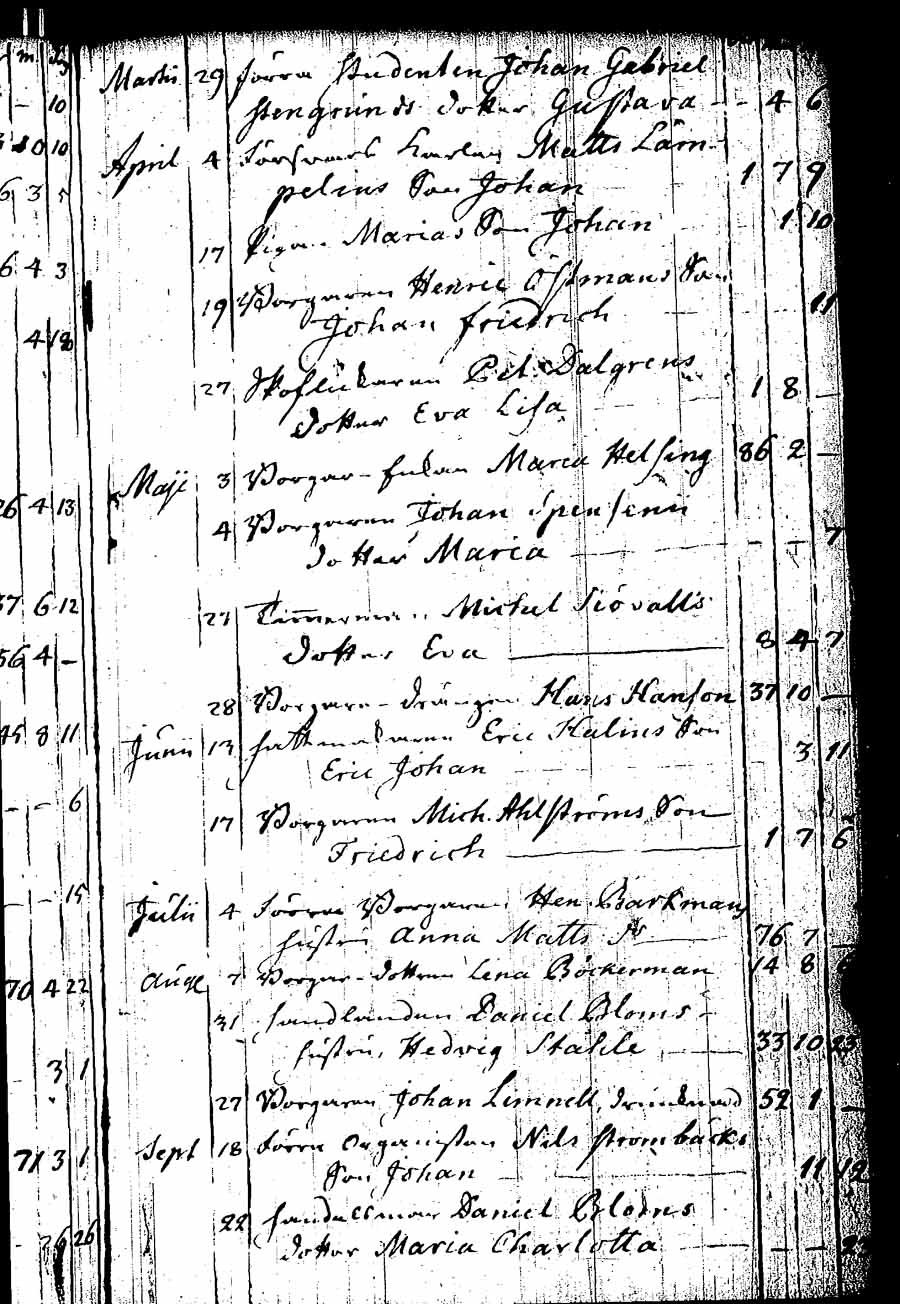 m dg
Martii 29 förra Studenten Johan Gabriel
Stengrunds dotter Gustava - - 4 6
10
April 4 Försvars Karlen Matts Läm-
pelius Son Johan 1 7 9
6 3 5
17 Pigan Marias Son Johan 1 10
6 4 3
19 Borgaren Henric Östmans Son
Johan Friedrich 11
4 18
27 Skoflickaren Pet. Dalgrens
dotter Eva Lisa 1 8 -
Maji 3 Borgar-Enkan Maria Helsing 86 2 -
26 4 13
4 Borgaren Johan
dotter Maria - - 7
37 6 12
27 Timmerman Mickel Siövalls
dotter Eva 8 4 7
56 4 -
28 Borgare-drängen Hans Hanson 37 10 -
45 8 11
Junii 13 Hattmakaren Eric Kalins Son
Eric Johan 3 11
- - 6
17 Borgaren Mich. Ahlströms Son
Friedrich 1 7 6
- - 15
Julii 4 förra Borgaren Hen. Barkmans
hustru Anna Matts dr 76 7 -
Aug 7 Borgar-dottren Lena Böckerman 14 8
70 4 22
31 handlanden Daniel Bloms
hustru, Hedvig Stahle 33 10 23
3 1
27 Borgaren Johan Limnell, drunknad 52 1 -
Sept 18 förra Organisten Nils Strömbäcks
Son Johan 11 12
71 3 1
22 handelsman Daniel Bloms
dotter Maria Charlotta - -
26 26